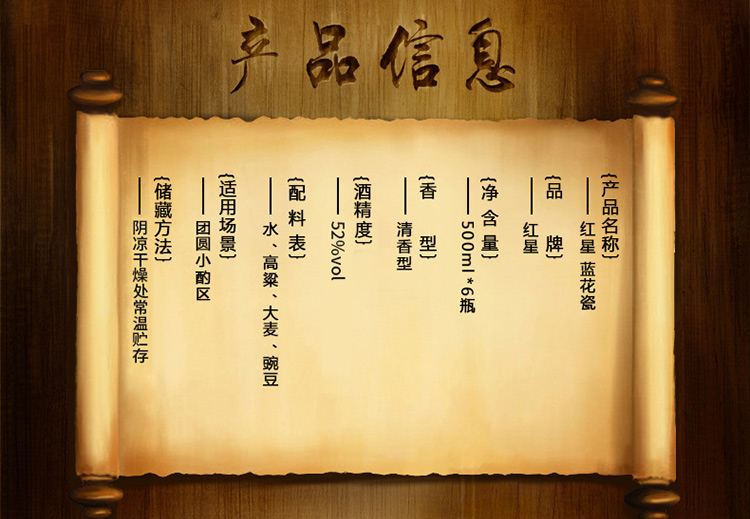 产品信息
{产品名称}
——红星 蓝花瓷
{品牌}
——红星
{净含量}
——500ml*6瓶
{香型}
——清香型
{酒精度}
——52%vol
{配料表}
——水、高粱、大麦、豌豆
{适用场景}
——团圆小酌区
{储藏方法}
——阴凉干燥处常温贮存